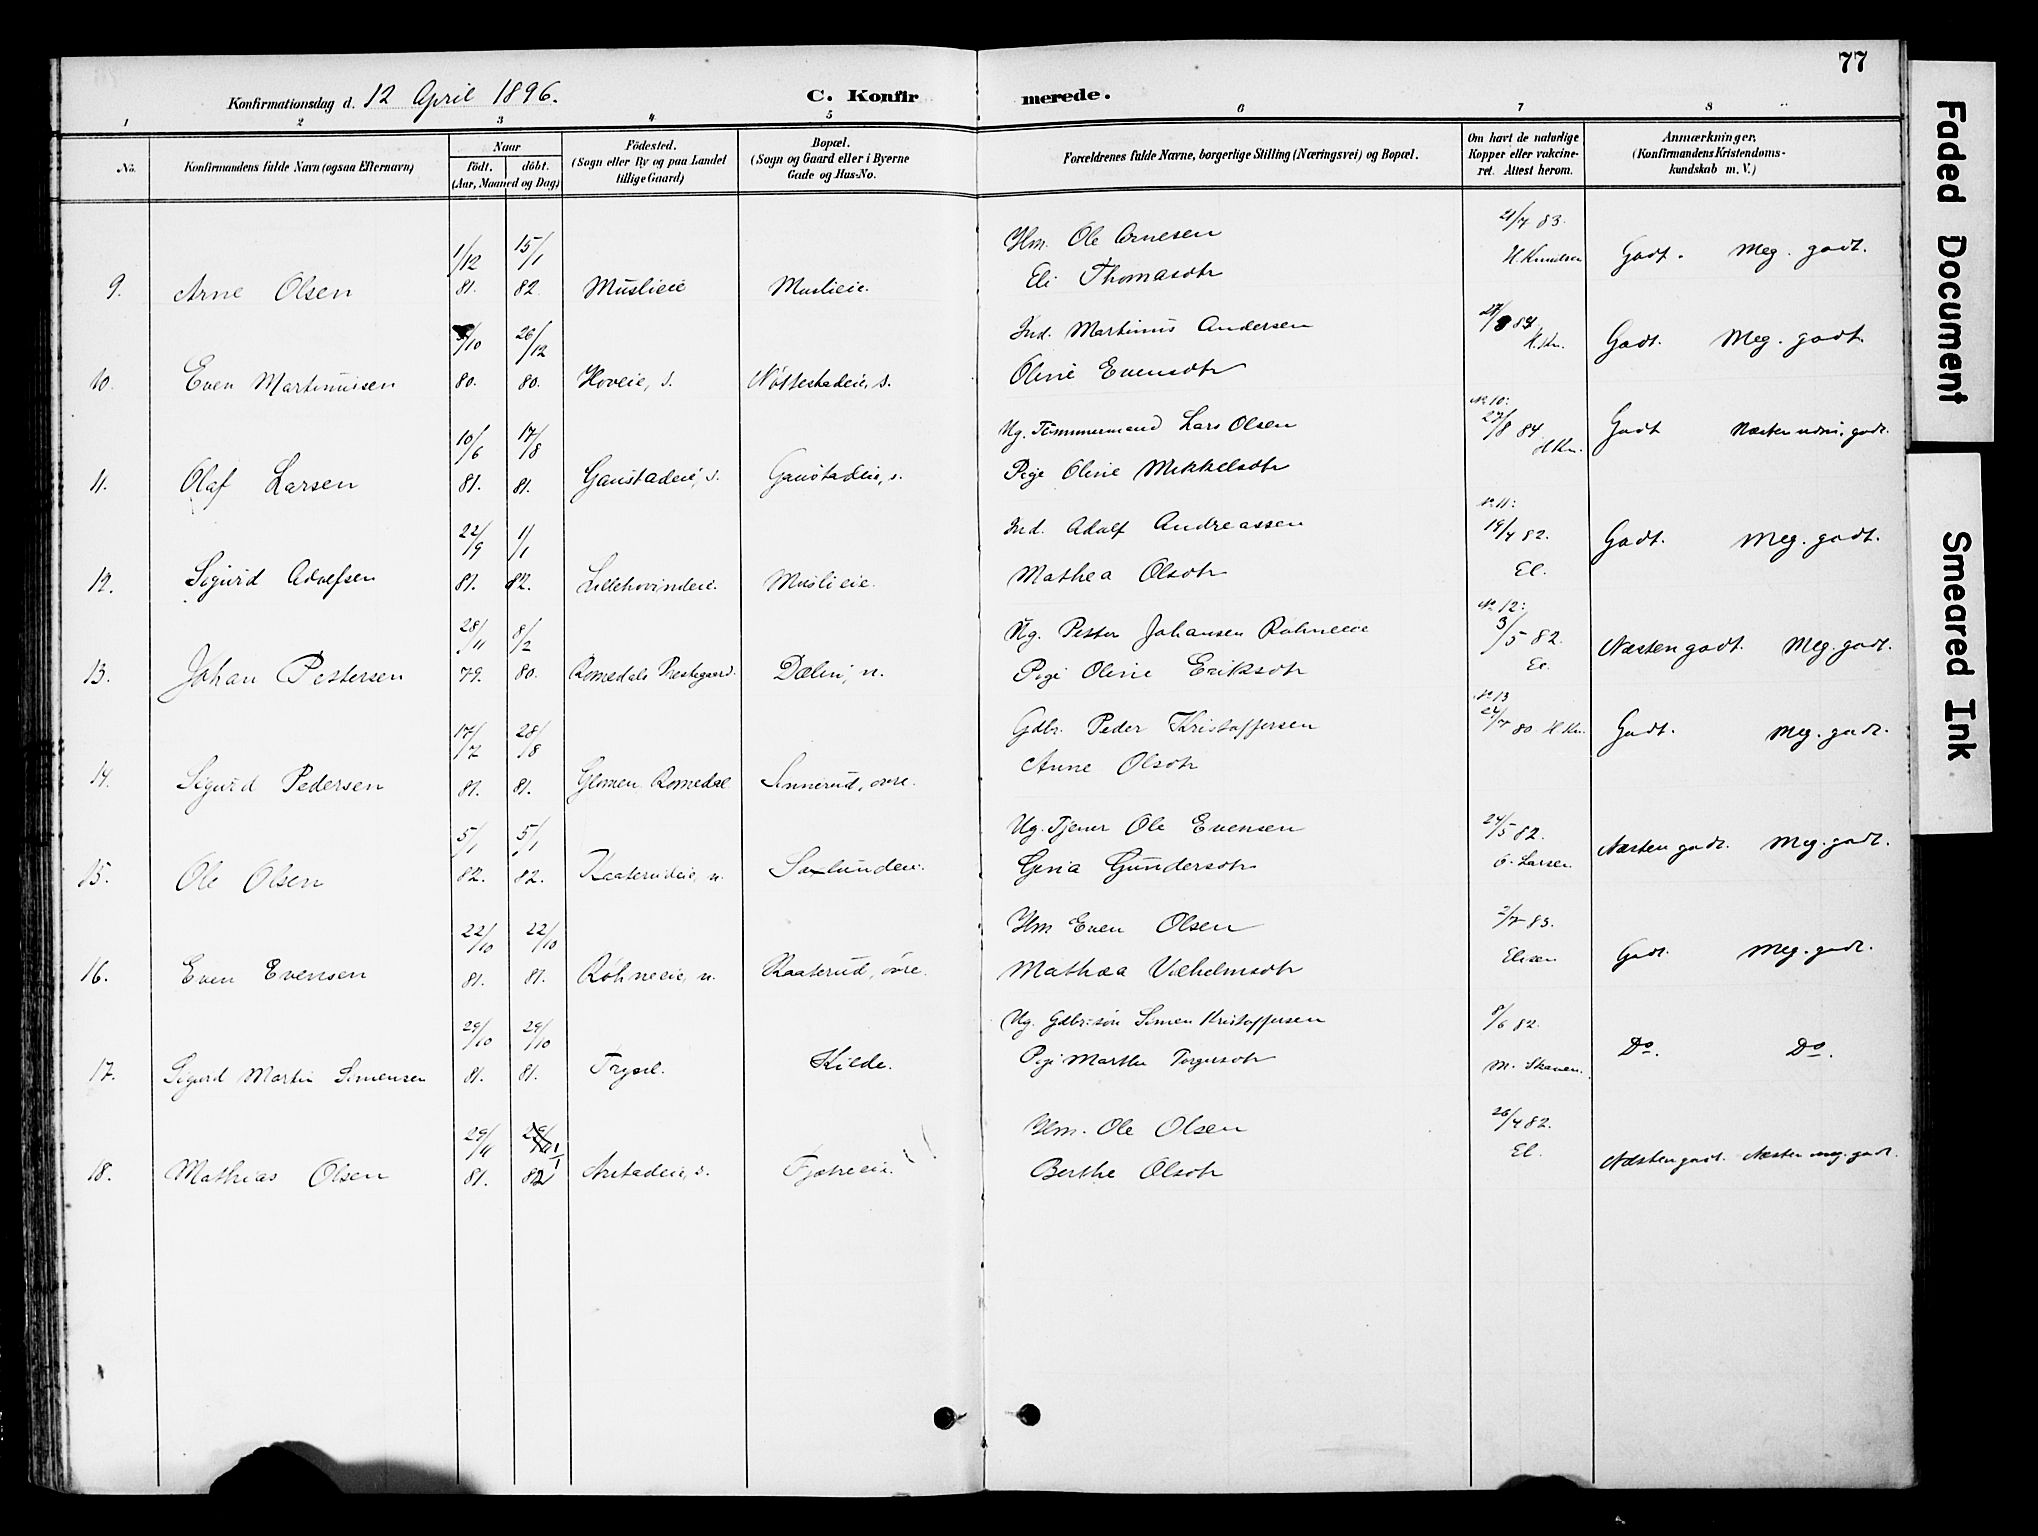 77
Konfirmationsdag d. 12 April 1896.
C. Konfirmerede.
1 2 3 4 5 6 7 8
No.
Konfirmandens fulde Navn (ogsaa Efternavn)
Naar
født. døbt.
(Aar, Maaned og Dag)
Fødested.
(Sogn eller By og paa Landet
tillige Gaard)
Bopæl.
(Sogn og Gaard eller i Byerne
Gade og Hus-No.
Forældrenes fulde Navne, borgerlige Stilling (Næringsvei) og Bopæl.
Om havt de naturlige
Kopper eller vakcine-
ret. Attest herom.
Anmærkninger.
(Konfirmandens Kristendoms-
kundskab m. V.)
1/12 15/1 Hm. Ole Arnesen 21/4 83.
9. Arne Olsen 81. 82 Muslieie Muslieie. Eli Thomasdtr H Knudsen Godt. Meg. godt.
/10 26/12 Ind. Martinus Andersen H.Kn.
10. Even Martinusen 80. 80. Hoveie, s. Nøttestadeie, s. Oline Evensdtr Godt. Meg. godt.
10/6 17/8 Ug. Tømmermand Lars Olsen No. 10: 27/8 84 H Kn.
11. Olaf Larsen 81. 81. Gaustadeie, s. Gaustadeie, s. Pige Oline Mikkelsdtr Godt Næsten udm. godt.
22/9 1/1 Ind. Adolf Andreassen No 11: 19/4 82.
12. Sigurd Adolfsen 81. 82. Lillehovindeie. Muslieie. Mathea Olsdtr El. Godt. Meg. godt.
28/11 8/2 Ug. Petter Johansen Røhneeie No. 12: 3/5 82.
13. Johan Pettersen 79. 80. Romedals Prestegaard. Dælin, n. Pige Oline Eriksdtr El. Næsten godt. Meg. godt.
17/7 28/8 Gdbr. Peder Kristoffersen No 13 80 H Kn.
14. Sigurd Pedersen 81. 81. Glomen Romedal Sinnerud, øvre. Anne Olsdtr Godt. Meg. godt.
5/1 5/1 Ug. Tjener Ole Evensen 24/5 82.
15. Ole Olsen 82. 82. Kaaterudeie, n. Sølundeie. Gina Gundersdtr O. Larsen Næsten godt. Meg. godt.
22/10 22/10 Hm Even Olsen 2/7 83.
16. Even Evensen 81. 81. Røhneeie, n. Kaaterud, øvre. Mathea Vilhelmsdtr Elisen Godt. Meg. godt.
29/10 29/10 Ug. Gdbr.søn Simen Kristoffersen 8/6 82.
17. Sigurd Martin Simensen 81. 81. Trysil. Kilde. Pige Marthe Torgersdtr M. Skaven. Do. Do.
29/11 1/1 Hm. Ole Olsen 26/4 82.
18. Mathias Olsen 81. 82 Arstadeie, s. Fjetreeie. Berthe Olsdtr El. Næsten godt. Næsten meg. godt.
Faded Document
Smeared Ink